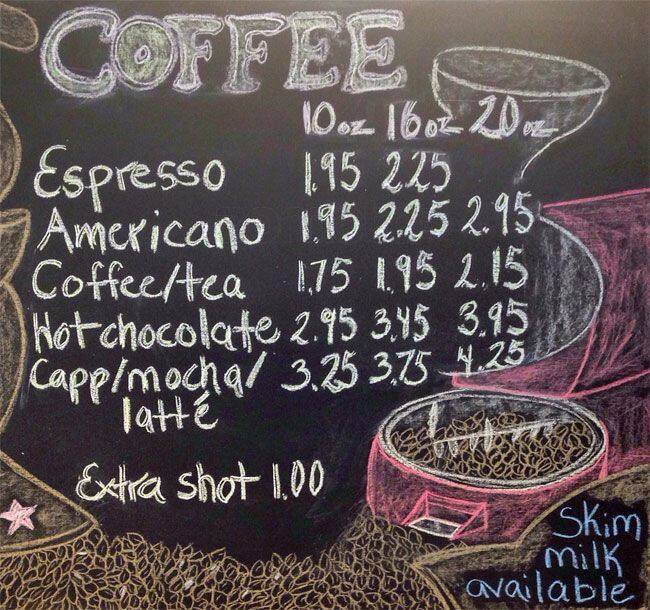 COFFEE
10oz 16oz 20oz
Espresso 1.95 2.25
Americano 1.95 2.25 2.95
Coffee/tea 1.75 1.95 2.15
Hot chocolate 2.95 3.45 3.95
Capp/mocha/ 3.25 3.75 4.25
latté
Extra shot 1.00
Skim
milk
available